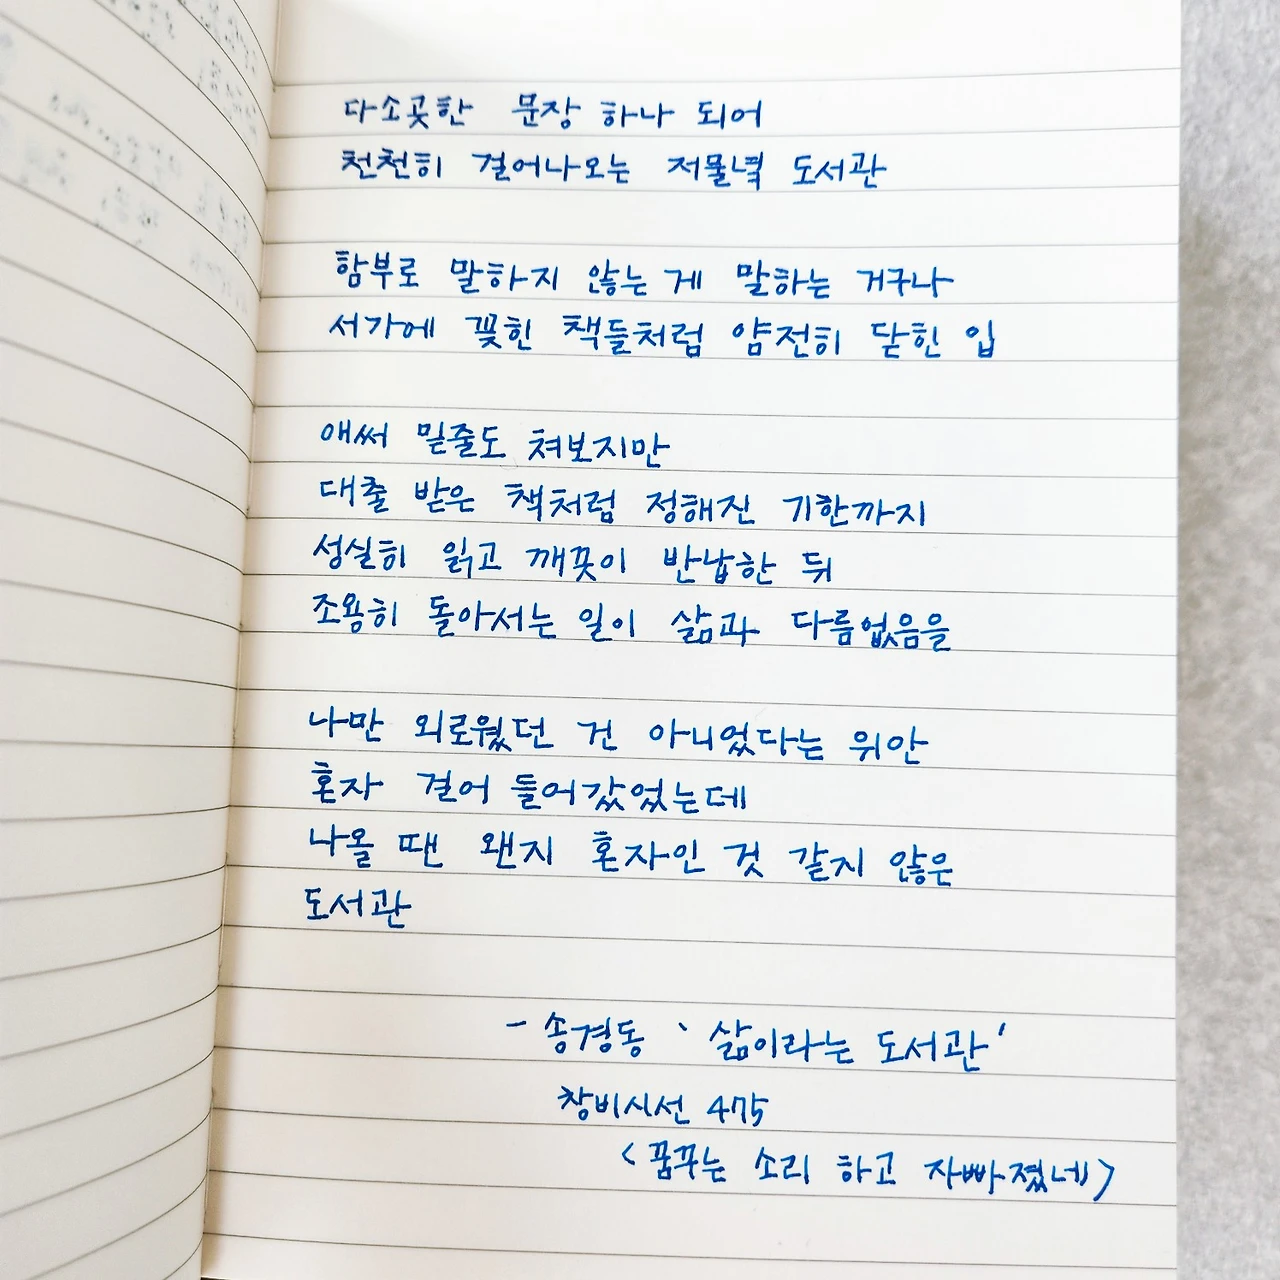 다소곳한 문장 하나 되어
천천히 걸어나오는 저물녘 도서관
함부로 말하지 않는 게 말하는 거구나
서가에 꽂힌 책들처럼 얌전히 닫힌 입
애써 밑줄도 쳐보지만
대출 받은 책처럼 정해진 기한까지
성실히 읽고 깨끗이 반납한 뒤
조용히 돌아서는 일이 삶과 다름없음을
나만 외로웠던 건 아니었다는 위안
혼자 걸어 들어갔었는데
나올 땐 왠지 혼자인 것 같지 않은
도서관
- 송경동 '삶이라는 도서관'
창비시선 475
<꿈꾸는 소리 하고 자빠졌네>